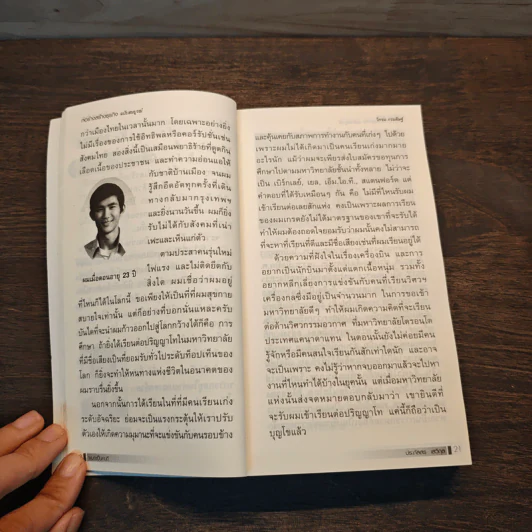 กว่าเมืองไทยในเวลานั้นมาก โดยเฉพาะอย่างยิ่ง
ไม่มีเรื่องของการใช้อิทธิพลหรือคอร์รัปชันเช่น
สังคมไทย สองสิ่งนี้เป็นเสมือนพยาธิร้ายที่ดูดกิน
เลือดเนื้อของประชาชน และทำความอ่อนแอให้
กับชาติบ้านเมือง จนผม
รู้สึกอึดอัดทุกครั้งที่เดิน
ทางกลับมากรุงเทพฯ
และยิ่งนานวันขึ้น ผมก็ยิ่ง
รับไม่ได้กับสังคมที่เน่า
เฟะและเห็นแก่ตัว
ตามประสาคนรุ่นใหม่
ไฟแรง และไม่ติดยึดกับ
สิ่งใด ผมเชื่อว่าผมอยู่
ผมเมื่อตอนอายุ 23 ปี
ที่ไหนก็ได้ในโลกนี้ ขอเพียงให้เป็นที่ที่ผมสุขกาย
สบายใจเท่านั้น แต่ก็อย่างที่บอกนั่นแหละครับ
บันไดที่จะนำผมก้าวออกไปสู่โลกกว้างได้ก็คือ การ
ศึกษา ถ้ายิ่งได้เรียนต่อปริญญาโทในมหาวิทยาลัย
ที่มีชื่อเสียงเป็นที่ยอมรับทั่วไประดับท็อปเท็นของ
โลก ก็ยิ่งจะทำให้หนทางแห่งชีวิตในอนาคตของ
ผมราบรื่นยิ่งขึ้น
นอกจากนั้นการได้เรียนในที่ที่มีคนเรียนเก่ง
ระดับอัจฉริยะ ย่อมจะเป็นแรงกระตุ้นให้เราปรับ
ตัวเองให้เกิดความมุมานะที่จะแข่งขันกับคนรอบข้าง
และคุ้นเคยกับสภาพการทำงานกับคนที่เก่งๆ ไปด้วย
เพราะผมไม่ได้เกิดมาเป็นคนเรียนเก่งมากมาย
อะไรนัก แม้ว่าผมจะเพียรส่งใบสมัครขอทุนการ
ศึกษาไปตามมหาวิทยาลัยชั้นนำทั้งหลาย ไม่ว่าจะ
เป็น เบิร์กเลย์, เยล, เอ็ม.ไอ.ที., สแตนฟอร์ด แต่
คำตอบที่ได้รับเหมือนๆ กัน คือ ไม่มีที่ไหนรับผม
เข้าเรียนต่อเลยสักแห่ง คงเป็นเพราะผลการเรียน
ของผมเกรดยังไม่ได้มาตรฐานของเขาที่จะรับได้
ทำให้ผมต้องถอดใจยอมรับว่าผมนั้นคงไม่สามารถ
ที่จะหาที่เรียนที่ดีและมีชื่อเสียงเช่นที่ผมเรียนอยู่ได้
ด้วยความที่ฝังใจในเรื่องเครื่องบิน และการ
อยากเป็นนักบินมาตั้งแต่แตกเนื้อหนุ่ม รวมทั้ง
อยากหลีกเลี่ยงการแข่งขันกับคนที่เรียนวิศวฯ
เครื่องกลซึ่งมีอยู่เป็นจำนวนมาก ในการขอเข้า
มหาวิทยาลัยดีๆ ทำให้ผมเกิดความคิดที่จะเรียน
ต่อด้านวิศวกรรมอวกาศ ที่มหาวิทยาลัยโตรอนโต
ประเทศแคนาดาแทน ในตอนนั้นยังไม่ค่อยมีคน
รู้จักหรือมีคนสนใจเรียนกันสักเท่าใดนัก และอาจ
จะเป็นเพราะ คงไม่รู้ว่าหากจบออกมาแล้วจะไปหา
งานที่ไหนทำได้บ้างในยุคนั้น แต่เมื่อมหาวิทยาลัย
แห่งนั้นส่งจดหมายตอบกลับมาว่า เขายินดีที่
จะรับผมเข้าเรียนต่อปริญญาโท แค่นี้ก็ถือว่าเป็น
บุญโขแล้ว
21